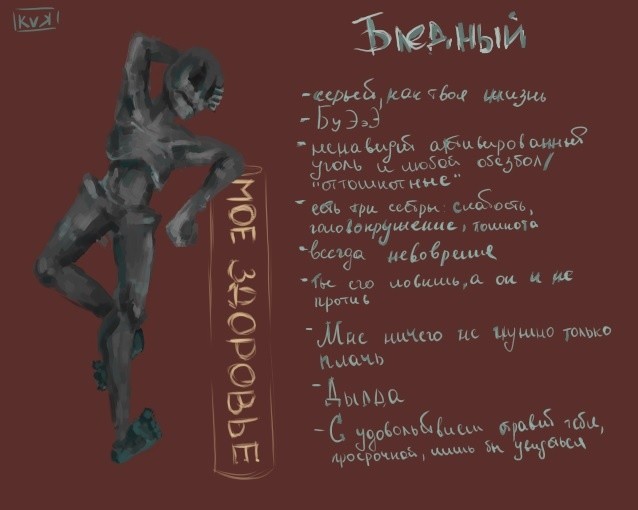 KVЯ
Бледный
- серый, как твоя жизнь
- БуЭэЭ
- ненавидит активированный
уголь и любой обезбол/
"оттошнотные"
- есть три сестры: слабость,
головокружение, тошнота
- всегда невовремя
- Ты его ловишь, а он и не
против
- Мне ничего не нужно только
плачь
- Дылда
- С удовольствием травит тебя,
просрочкой, лишь бы
МОЕ ЗДОРОВЬЕ